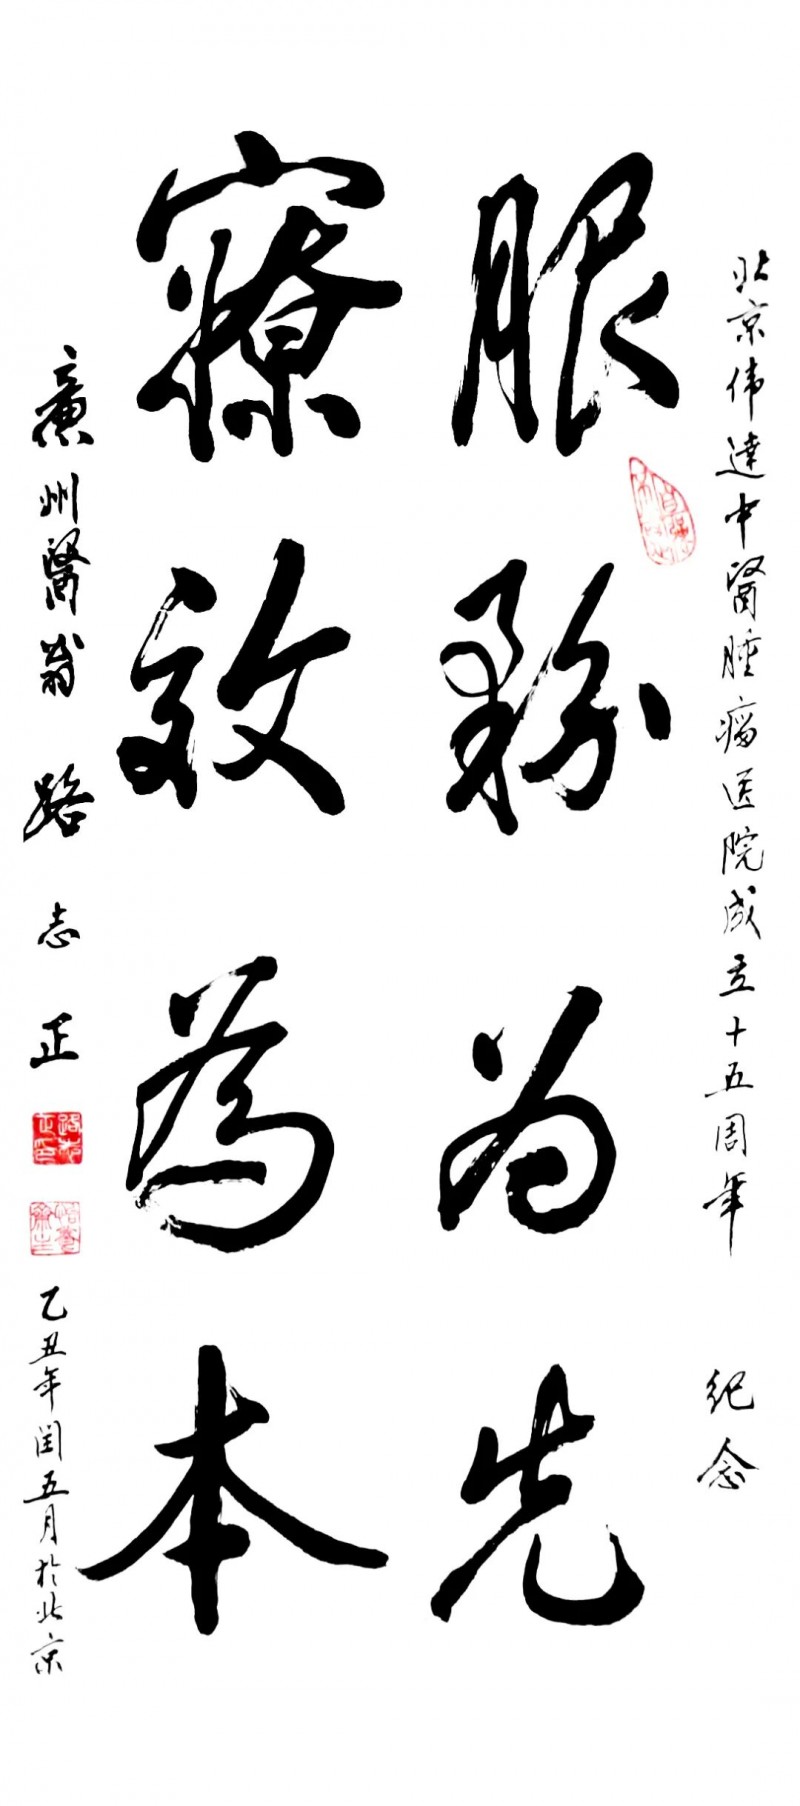 北京伟達中醫腫瘤医院成立十五周年 纪念
服務为先
療效為本
廣州醫翁 路志正
己丑年闰五月於北京
路志正印